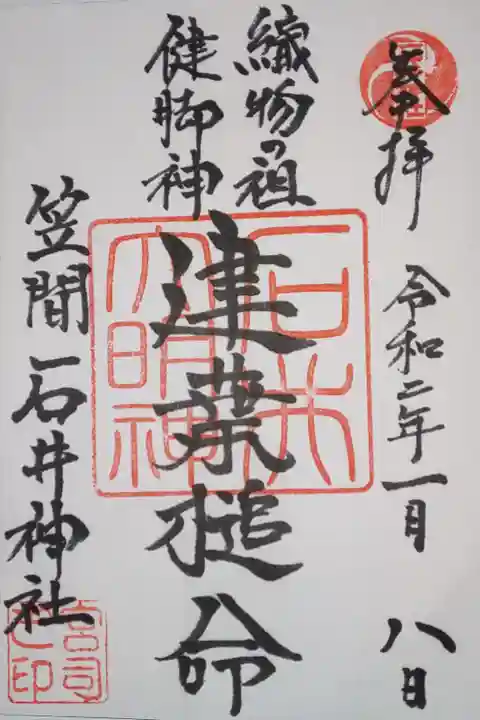 奉拝
令和二年一月八日
織物の祖
健脚神
建葉槌命
笠間 石井神社
石井
大明神
宮司之印